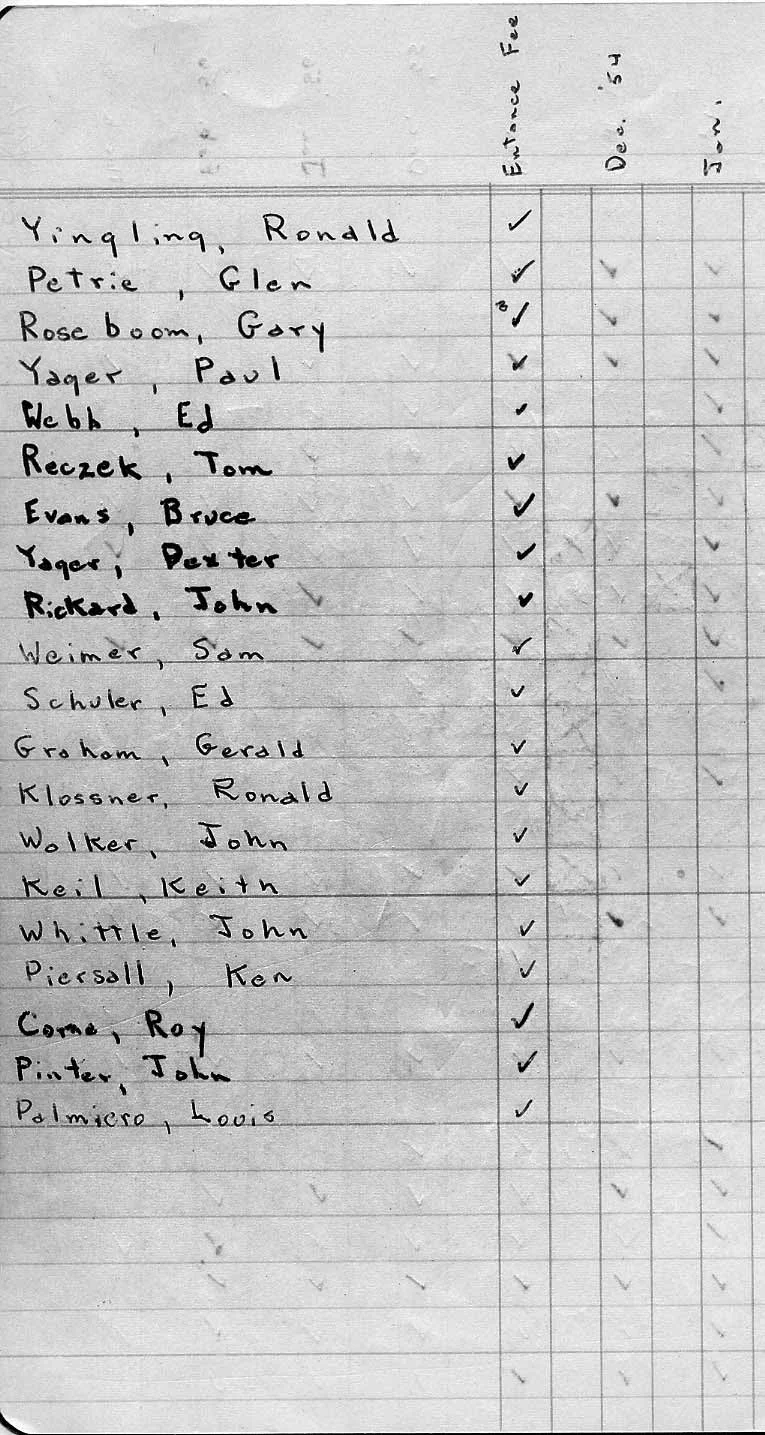 Entrance Fee Dec. '54 Jan.
Yingling, Ronald ✓
Petrie, Glen ✓
Roseboom, Gary ✓
Yager, Paul ✓
Webb, Ed ✓
Reczek, Tom ✓
Evans, Bruce ✓
Yager, Dexter ✓
Rickard, John ✓
Weimer, Sam ✓
Schuler, Ed ✓
Graham, Gerald ✓
Klossner, Ronald ✓
Walker, John ✓
Keil, Keith ✓
Whittle, John ✓
Piersall, Ken ✓
Roy ✓
Pinter, John ✓
Palmiero, Louis ✓